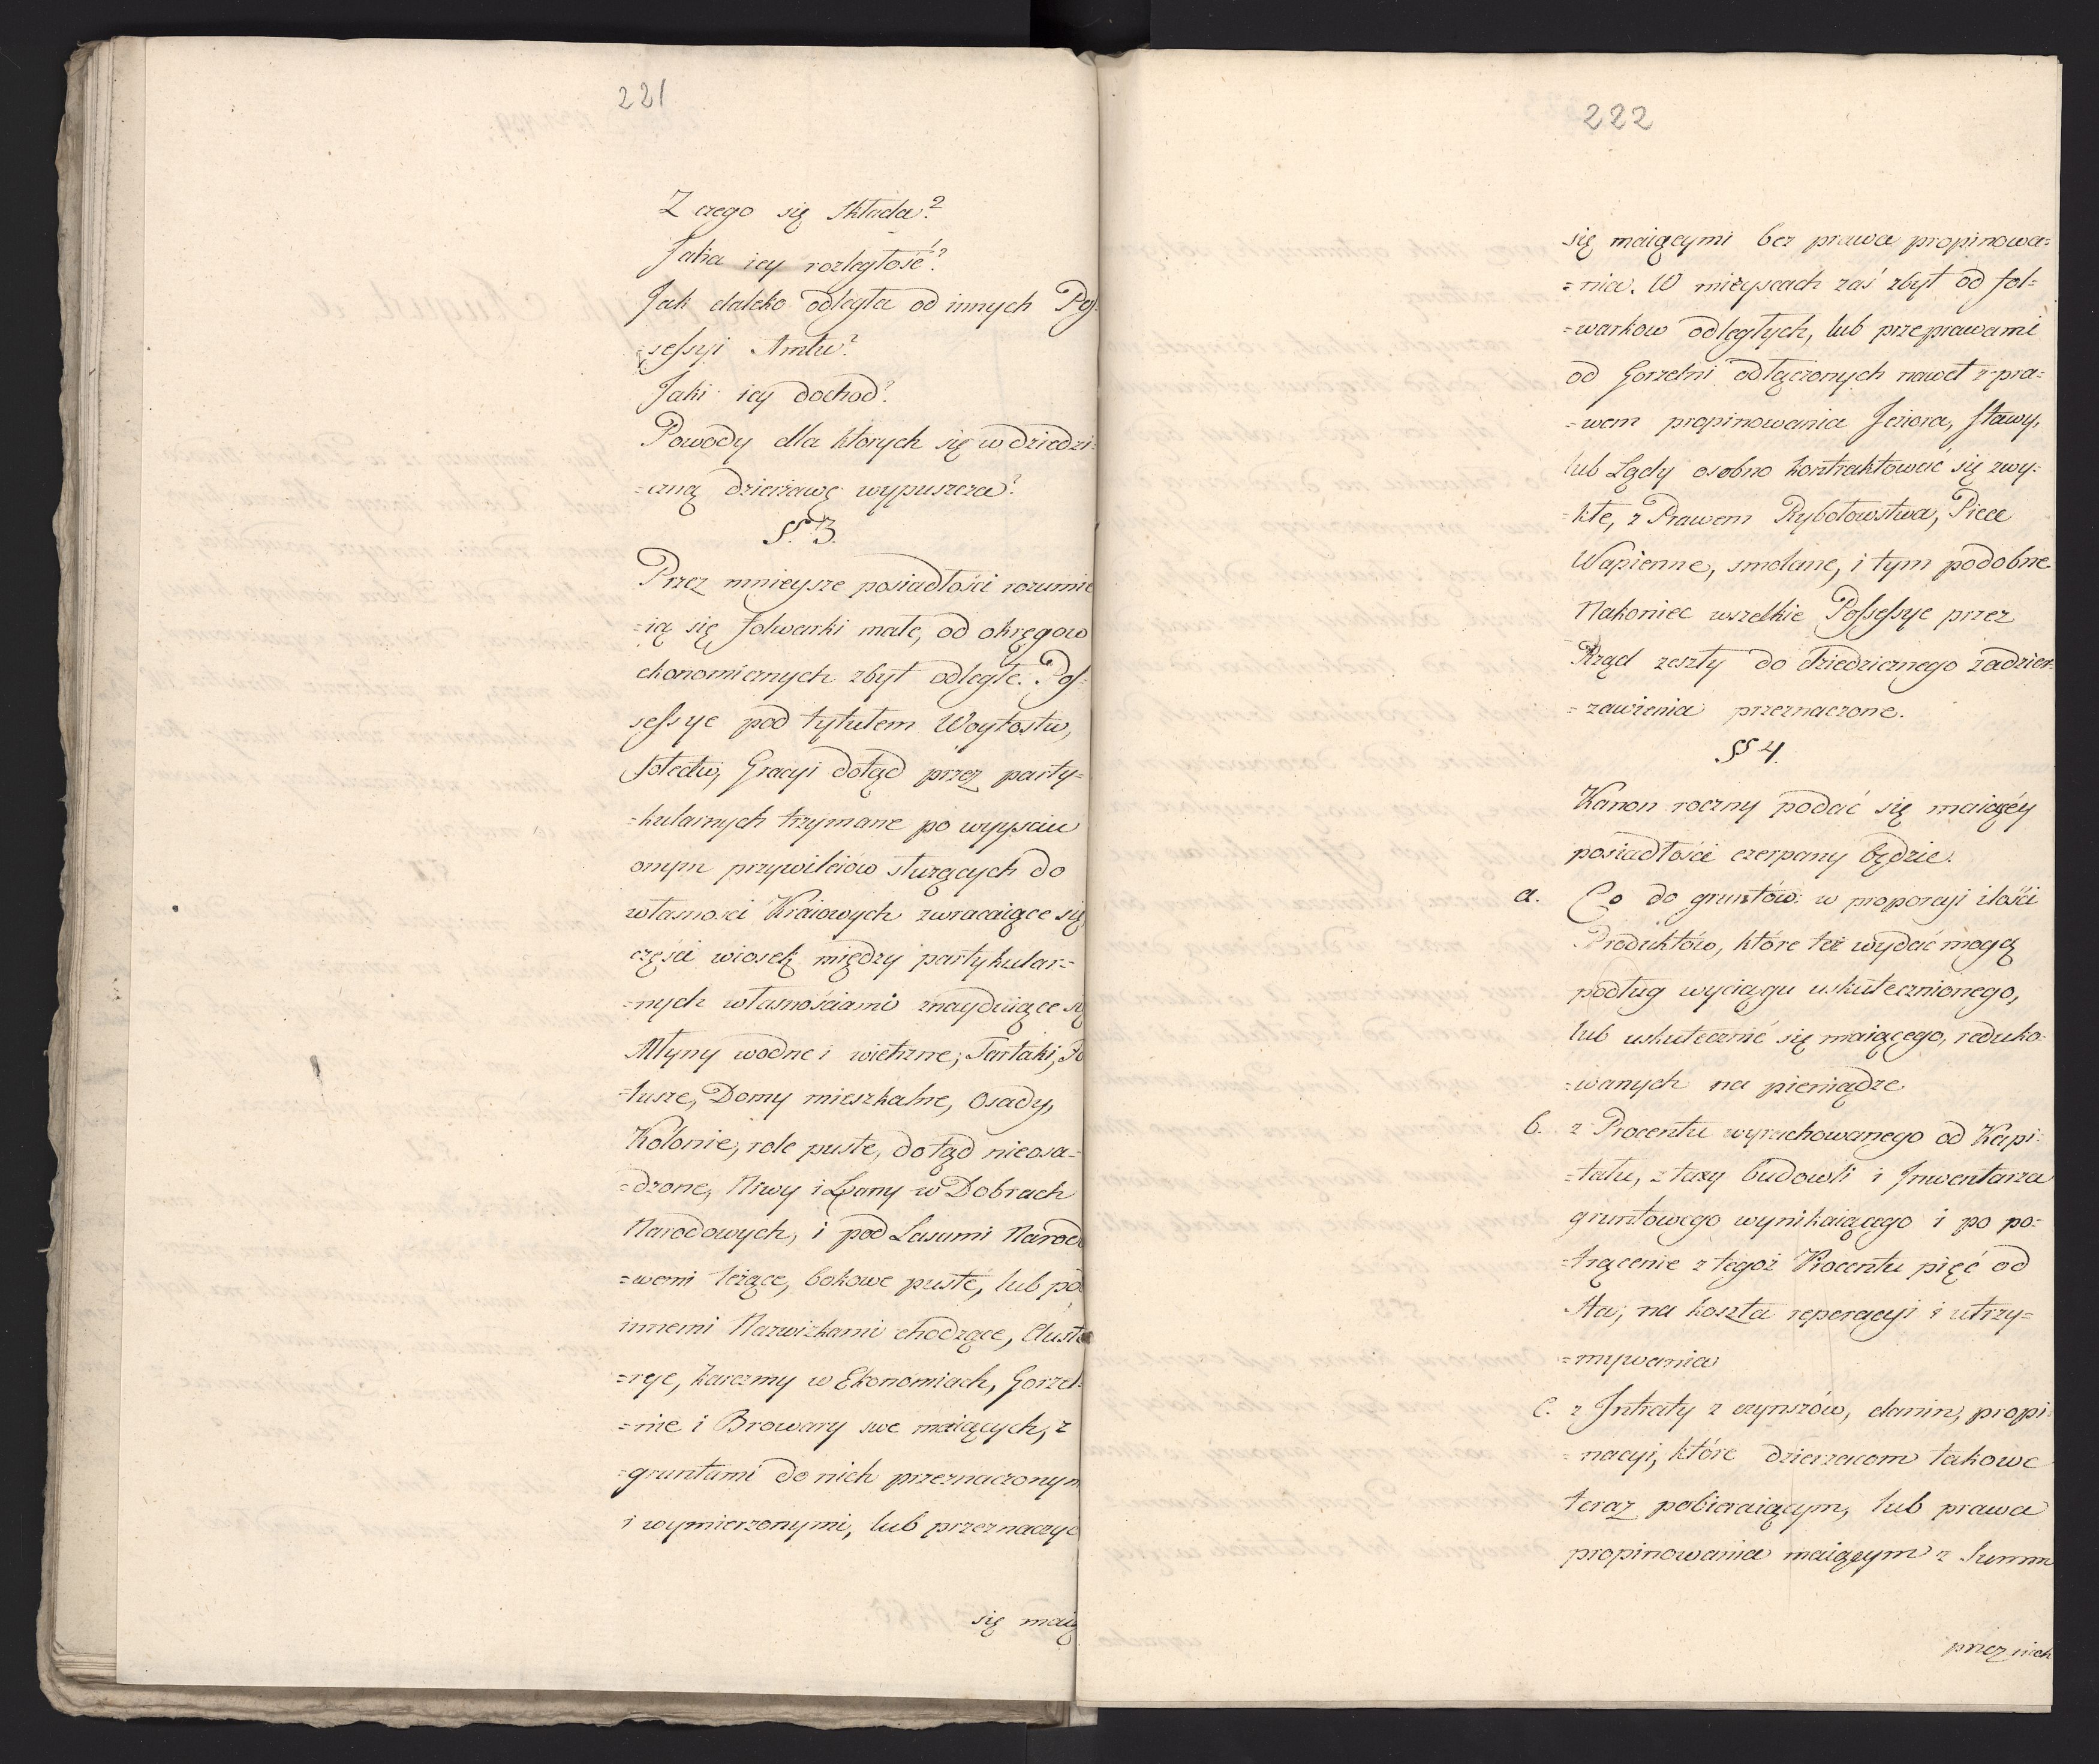 221
Z czego się składa?
Jaka iey rozległość?
Jak daleko odległa od innych Pos=
=sessyi Amtu?
Jaki iey dochod?
Powody dla ktorych się w dziedzi=
=czną dzierżawę wypuszcza?
§. 3.
Przez mnieysze posiadłości rozumie
=ią się folwarki małe, od okręgow
ekonomicznych zbyt odległe. Pos=
sessye pod tytułem Woytostw,
sołectw, Gracyi dotąd przez party=
=kularnych trzymane po wyyściu
onym przywileiów służących do
własności Kraiowych zwracaiące się
części wiosek między partykular=
=nych własnościami znayduiące się
Młyny wodne i wietrzne; Tartaki,
=lusze, Domy mieszkalne, Osady,
Kolonie, role puste, dotąd nieosa=
=dzone, Niwy i Łany w Dobrach
Narodowych, i pod Lasami Narodo
=wemi leżące, bokowe puste, lub pod
innemi Nazwiskami chodzące, Auste
=rye, karczmy w Ekonomiach, Gorzel=
=nie i Browary swe maiących, z
=gruntami do nich przeznaczonym
i wymierzonymi, lub przeznaczyć
się maią
222
się maiącymi bez prawa propinowa=
=nia. W mieyscach zaś zbyt od fol=
=warkow odległych, lub przeprawami
od Gorzelni odłączonych nawet z pra=
=wem propinowania Jeziora, stawy,
lub Lądy osobno kontraktować się zwy=
=kłe, z Prawem Rybołowstwa, Piece
Wapienne, smolane, i tym podobne
Nakoniec wszelkie Possessye przez
Rząd zeszły do dziedzicznego zadzier=
=zawienia przeznaczone.
§§ 4.
Kanon roczny podać się maiącéy
posiadłości czerpany będzie.
a. Co do gruntów: w proporcyi ilości
Produktów, które też wydać mogą
podług wyciągu uskutecznionego,
lub uskutecznić się maiącego, reduko=
=wanych na pieniądze
b. z Procentu wyrachowanego od Kapi=
=tału, z taxy budowli i Inwentarza
gruntowego wynikaiącego i po po=
=trącenie z tegoż Procentu pięć od
sta, na koszta reperacyi i utrzy=
=mywania
c. z Intraty z czynszów, danin, propi=
=nacyi, które dzierzacom takowe
teraz pobieraiącym, lub prawa
propinowania maiącym z Summ
przez nich